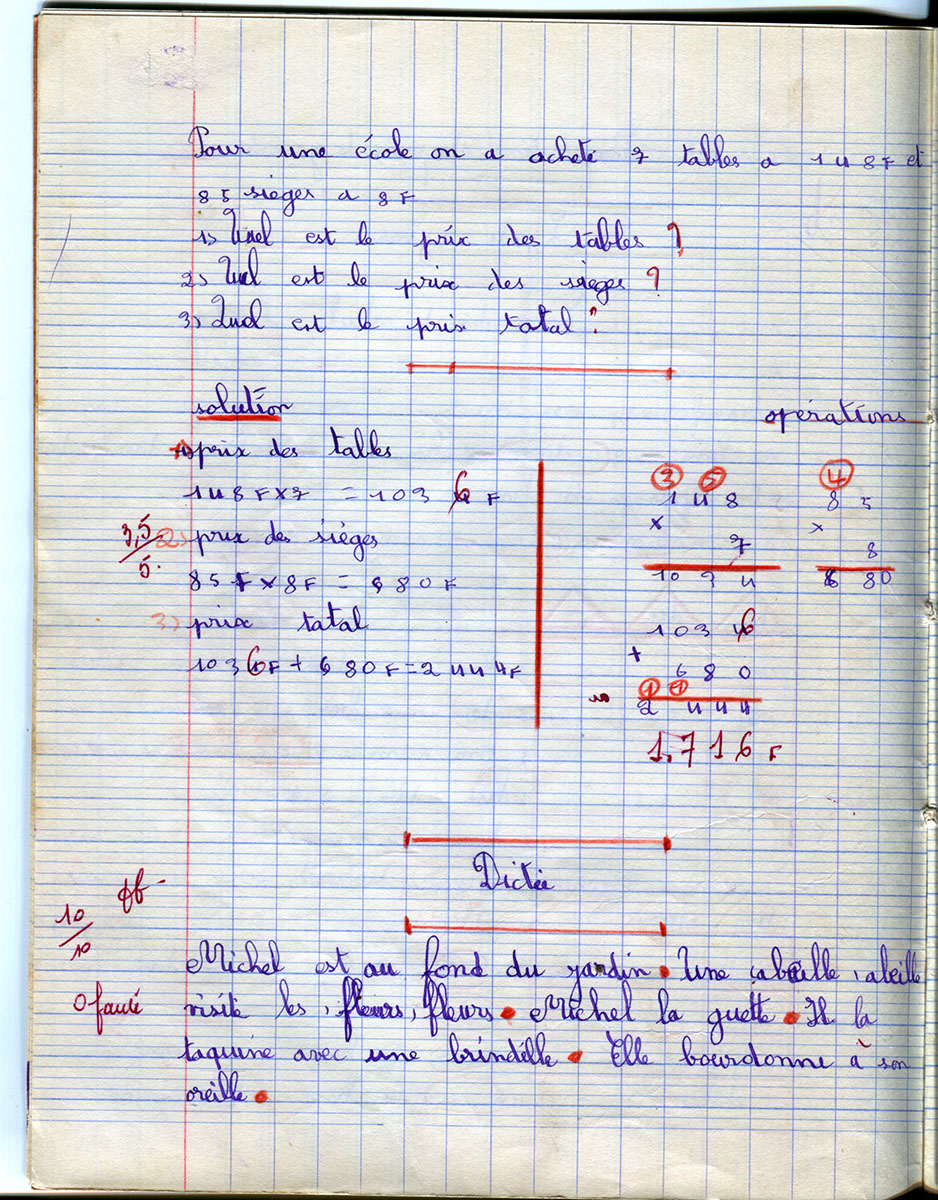 Pour une école on a acheté 7 tables a 148F et
85 sièges a 8F
1) Quel est le prix des tables ?
2) Quel est le prix des sieges ?
3) Quel est le prix tatal ?
solution
opérations
1) prix des tables
3 5 4
148F x 7 = 1036 F
148 85
x x
7 8
3,5/5.
2) prix des sièges
85F x 8F = 680F
10 3 4 6 80
3) prix tatal
1036
1036F + 680F = 2444F
+
680
1 1
2 444
1.716 F
Dictée
10/10
0 faute
Michel est au fond du jardin. Une abeille, abeille
visite les, fleurs, fleurs. Michel la guette. Il la
taquine avec une brindélle. Elle bourdonne à son
oreille.